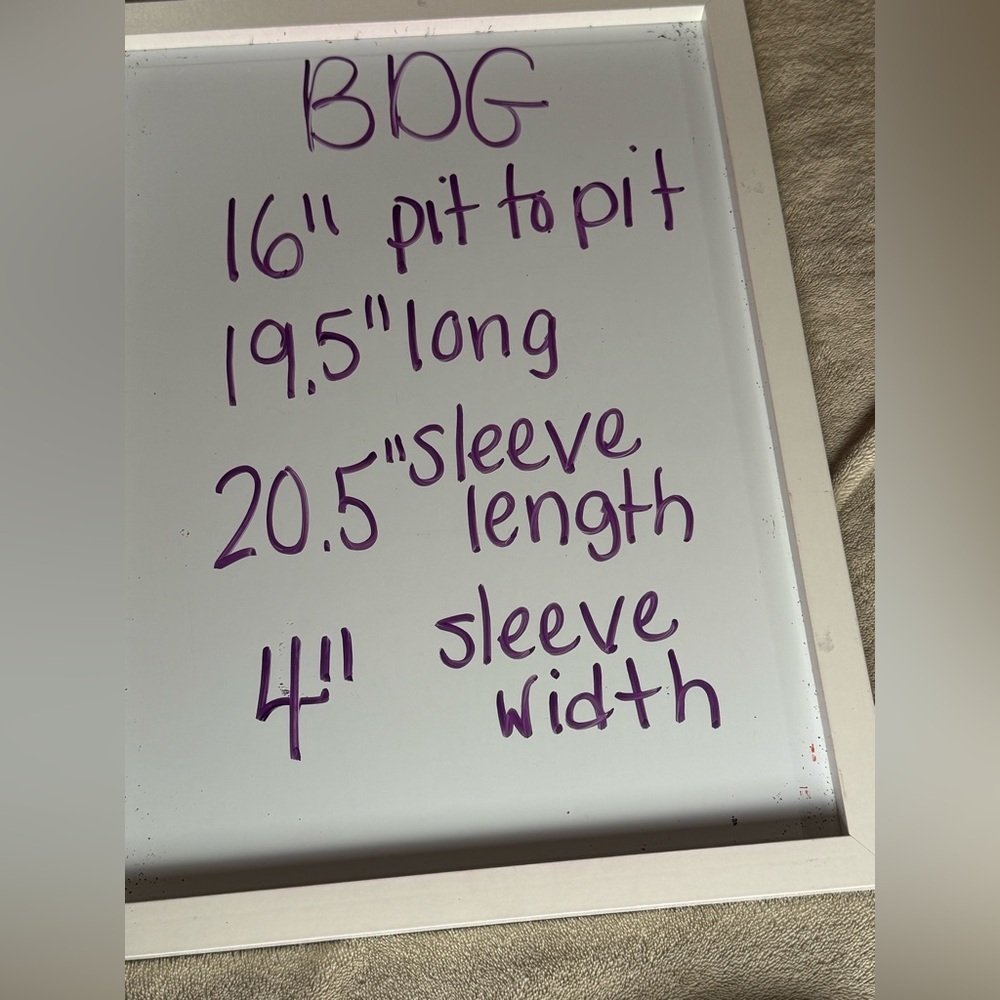 BDG
16" pit to pit
19.5" long
20.5" sleeve
length
4" sleeve
width